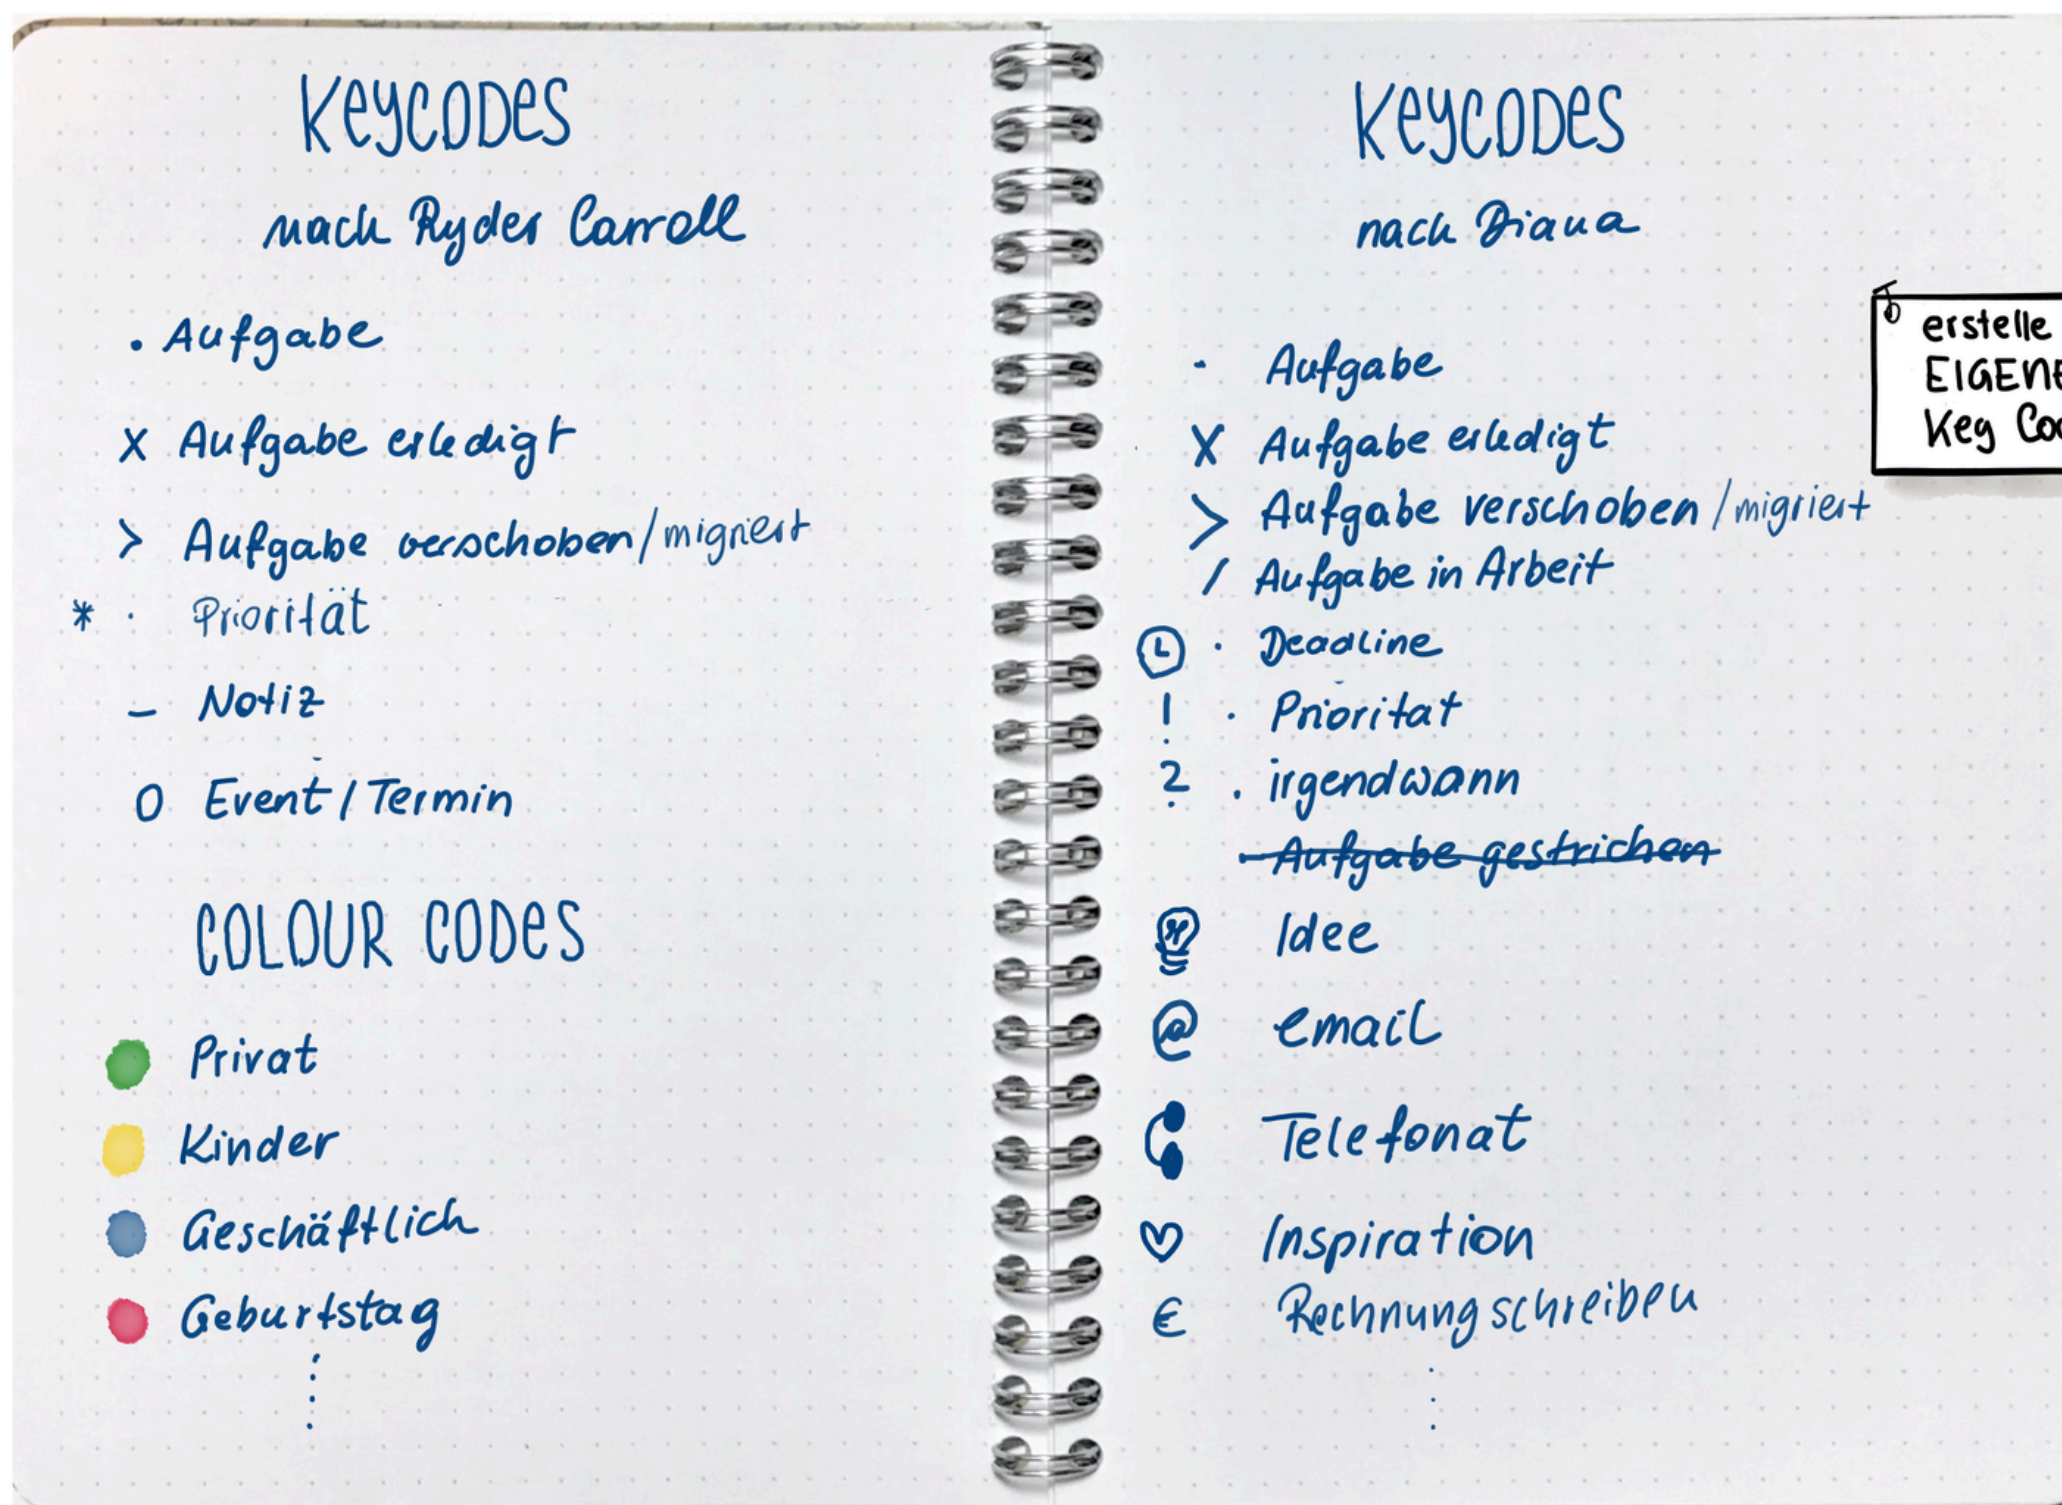 KEYCODES
nach Ryder Carroll
. Aufgabe
X Aufgabe erledigt
> Aufgabe verschoben/migriert
* · Priorität
– Notiz
O Event/Termin
COLOUR CODES
Privat
Kinder
Geschäftlich
Geburtstag
KEYCODES
nach Diana
· Aufgabe
X Aufgabe erledigt
> Aufgabe verschoben/migriert
/ Aufgabe in Arbeit
· Deadline
! · Prioritat
? . irgendwann
Aufgabe gestrichen
Idee
@ email
Telefonat
♡ Inspiration
€ Rechnung schreiben
erstelle
EIGENE
Key Coo